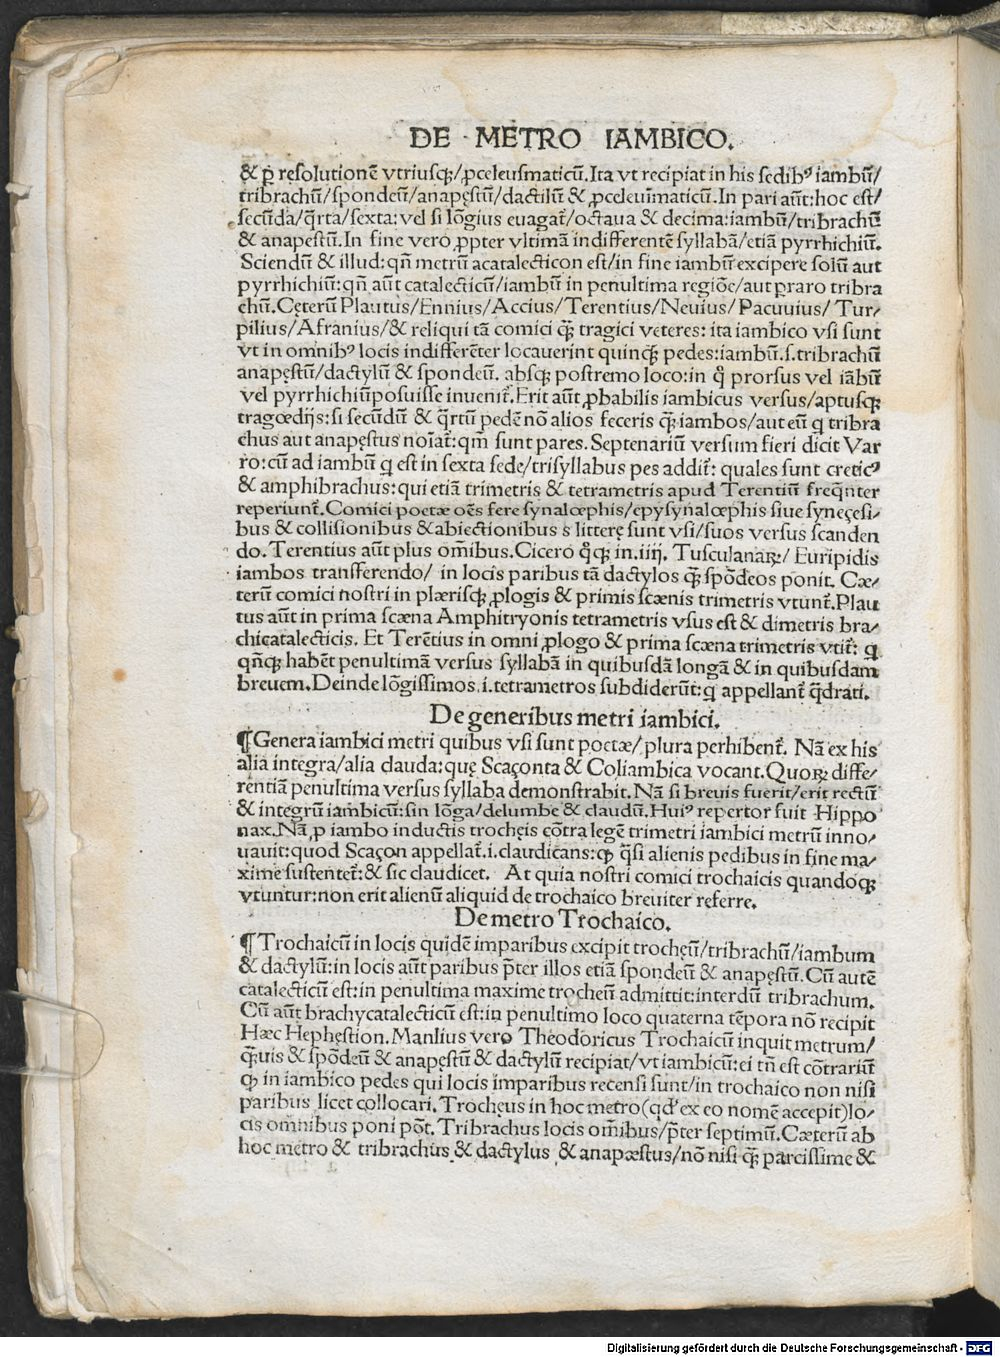 DE METRO IAMBICO.
& ꝑ resolutionē vtriusqꝫ/ꝓceleusmaticū. Ita vt recipiat in his sedibꝰ iambū/
tribrachū/spondeū/anapęstū/dactilū & ꝓceleusmaticū. In pari aūt: hoc est/
secūda/q̄rta/sexta: vel si lōgius euagat̄/octaua & decima: iambū/tribrachū
& anapestū. In fine vero ꝓpter vltimā indifferentē syllabā/etiā pyrrhichiū.
Sciendū & illud: qn̄ metrū acatalecticon est/in fine iambū excipere solū aut
pyrrhichiū: qn̄ aūt catalecticū/iambū in penultima regiōe/aut ꝑraro tribra
chū. Cęterū Plautus/Ennius/Accius/Terentius/Neuius/Pacuuius/Tur-
pilius/Afranius/& reliqui tā comici q̄ꝫ tragici veteres: ita iambico vsi sunt
vt in omnibꝰ locis indifferēter locauerint quinqꝫ pedes: iambū.s. tribrachū
anapęstū/dactylū & spondeū. absqꝫ postremo loco: in q̄ prorsus vel iābū
vel pyrrhichiū posuisse inuenit̄. Erit aūt ꝓbabilis iambicus versus/aptusqꝫ
tragœdijs: si secūdū & q̄rtū pedē nō alios feceris q̄ꝫ iambos/aut eū q tribra
chus aut anapęstus noīat̄: qm̄ sunt pares. Septenariū versum fieri dicit Var
ro: cū ad iambū q est in sexta sede/trisyllabus pes addit̄: quales sunt creticꝰ
& amphibrachus: qui etiā trimetris & tetrametris apud Terentiū freq̄nter
reperiunt̄. Comici poetæ oēs fere synalœphis/epysynalœphis siue synęcesi-
bus & collisionibus & abiectionibus s litterę sunt vsi/suos versus scanden
do. Terentius aūt plus om̄ibus. Cicero q̄qꝫ in.iiij. Tusculanaꝝ/Euripidis
iambos transferendo/ in locis paribus tā dactylos q̄ꝫ spōdeos ponit. Cæ-
terū comici nostri in plærisqꝫ ꝓlogis & primis scænis trimetris vtunt̄. Plau
tus aūt in prima scæna Amphitryonis tetrametris vsus est & dimetris bra-
chicatalecticis. Et Terētius in omni ꝓlogo & prima scæna trimetris vtit̄: q
qn̄qꝫ habēt penultimā versus syllabā in quibusdā longā & in quibusdam
breuem. Deinde lōgissimos.i. tetrametros subdiderūt: q appellant̄ q̄drati.
De generibus metri iambici.
¶ Genera iambici metri quibus vsi sunt poetæ/plura perhibent̄. Nā ex his
alia integra/alia clauda: quę Scaçonta & Coliambica vocant. Quoꝝ diffe-
rentiā penultima versus syllaba demonstrabit. Nā si breuis fuerit/erit rectū
& integrū iambicū: sin lōga/delumbe & claudū. Huiꝰ repertor fuit Hippo
nax. Nā ꝓ iambo inductis trochęis cōtra legē trimetri iambici metrū inno-
uauit: quod Scaçon appellat̄.i. claudicans: ꝙ q̄si alienis pedibus in fine ma-
xime sustentet̄: & sic claudicet. At quia nostri comici trochaicis quandoqꝫ
vtuntur: non erit alienū aliquid de trochaico breuiter referre.
De metro Trochaico.
¶ Trochaicū in locis quidē imparibus excipit trochęū/tribrachū/iambum
& dactylū: in locis aūt paribus p̄ter illos etiā spondeū & anapęstū. Cū autē
catalecticū est: in penultima maxime trocheū admittit: interdū tribrachum.
Cū aūt brachycatalecticū est: in penultimo loco quaterna tēpora nō recipit
Hæc Hephęstion. Manlius vero Theodoricus Trochaicū inquit metrum/
q̄ꝫuis & spōdeū & anapęstū & dactylū recipiat/vt iambicū: ei tn̄ est cōtrariū
ꝙ in iambico pedes qui locis imparibus recensi sunt/in trochaico non nisi
paribus licet collocari. Trochęus in hoc metro (qd' ex eo nomē accepit) lo-
cis omnibus poni pōt. Tribrachus locis om̄ibus/p̄ter septimū. Cæterū ab
hoc metro & tribrachus & dactylus & anapæstus/nō nisi q̄ꝫ parcissime &
Digitalisierung gefördert durch die Deutsche Forschungsgemeinschaft - DFG